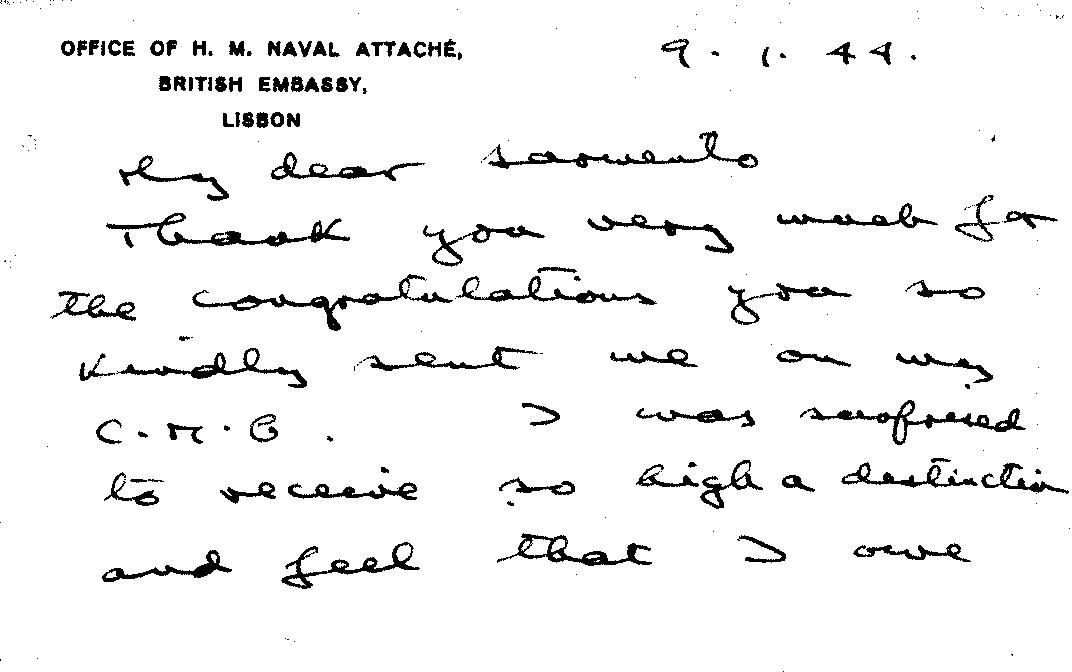 OFFICE OF H. M. NAVAL ATTACHÉ,
BRITISH EMBASSY,
LISBON
9. 1. 44.
My dear Sarmento
Thank you very much for
the congratulations you so
kindly sent me on my
C.M.G. I was surprised
to receive so high a distinction
and feel that I owe